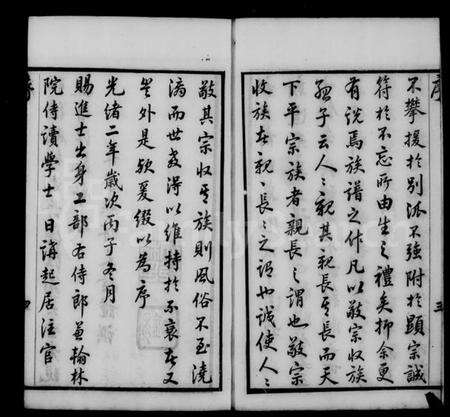 序
三
不攀援於別派不強附於顯宗誠
符於不忘所由生之禮矣抑余更
有說焉族譜之作凡以敬宗收族
孟子云人人親其親長其長而天
下平宗族者親長之謂也敬宗
收族在親親長長之謂也誠使人人
敬其宗收其族則風俗不至澆
漓而世教得以維持於不衰者又
豈外是歟爰綴以為序
光緒二年歲次丙子冬月
賜進士出身工部右侍郎兼翰林
院侍讀學士日講起居注官
序
四